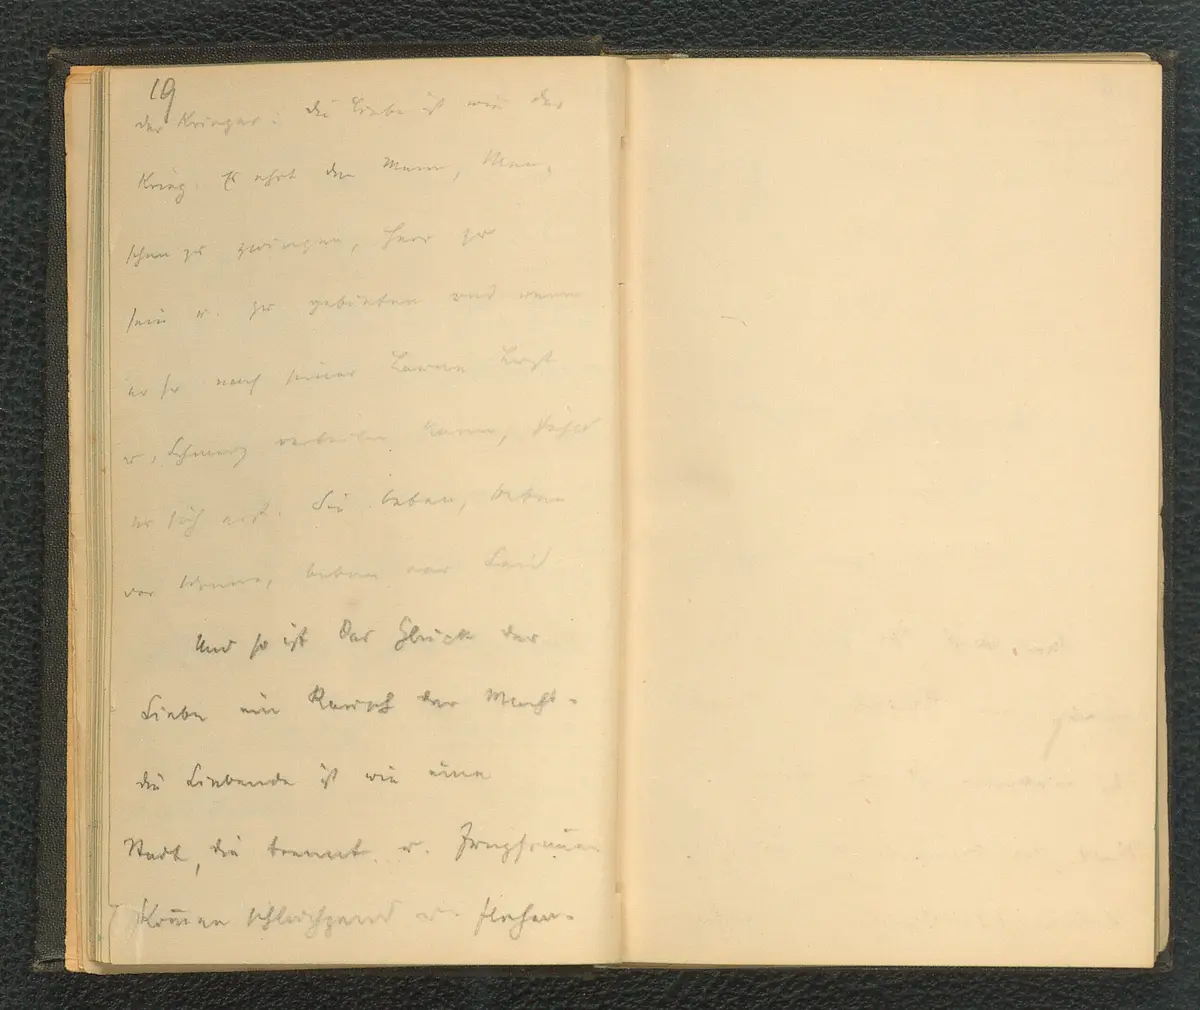 19
der Krieger: die Liebe ist wie der
Krieg. Es ehrt den Mann, Men-
schen zu zwingen, Herr zu
sein u. zu gebieten und wenn
er sie nach seiner Laune Lust
u. Schmerz verteilen kann, 
er sich erst. Sie beben, beben
vor Wonne, beben vor Leid
Und so ist das Glück der
Liebe ein Rausch der Macht-
die Liebende ist wie eine
Stadt, die brennt u. Jungfrauen
kom̅en schluchzend u. flehen-